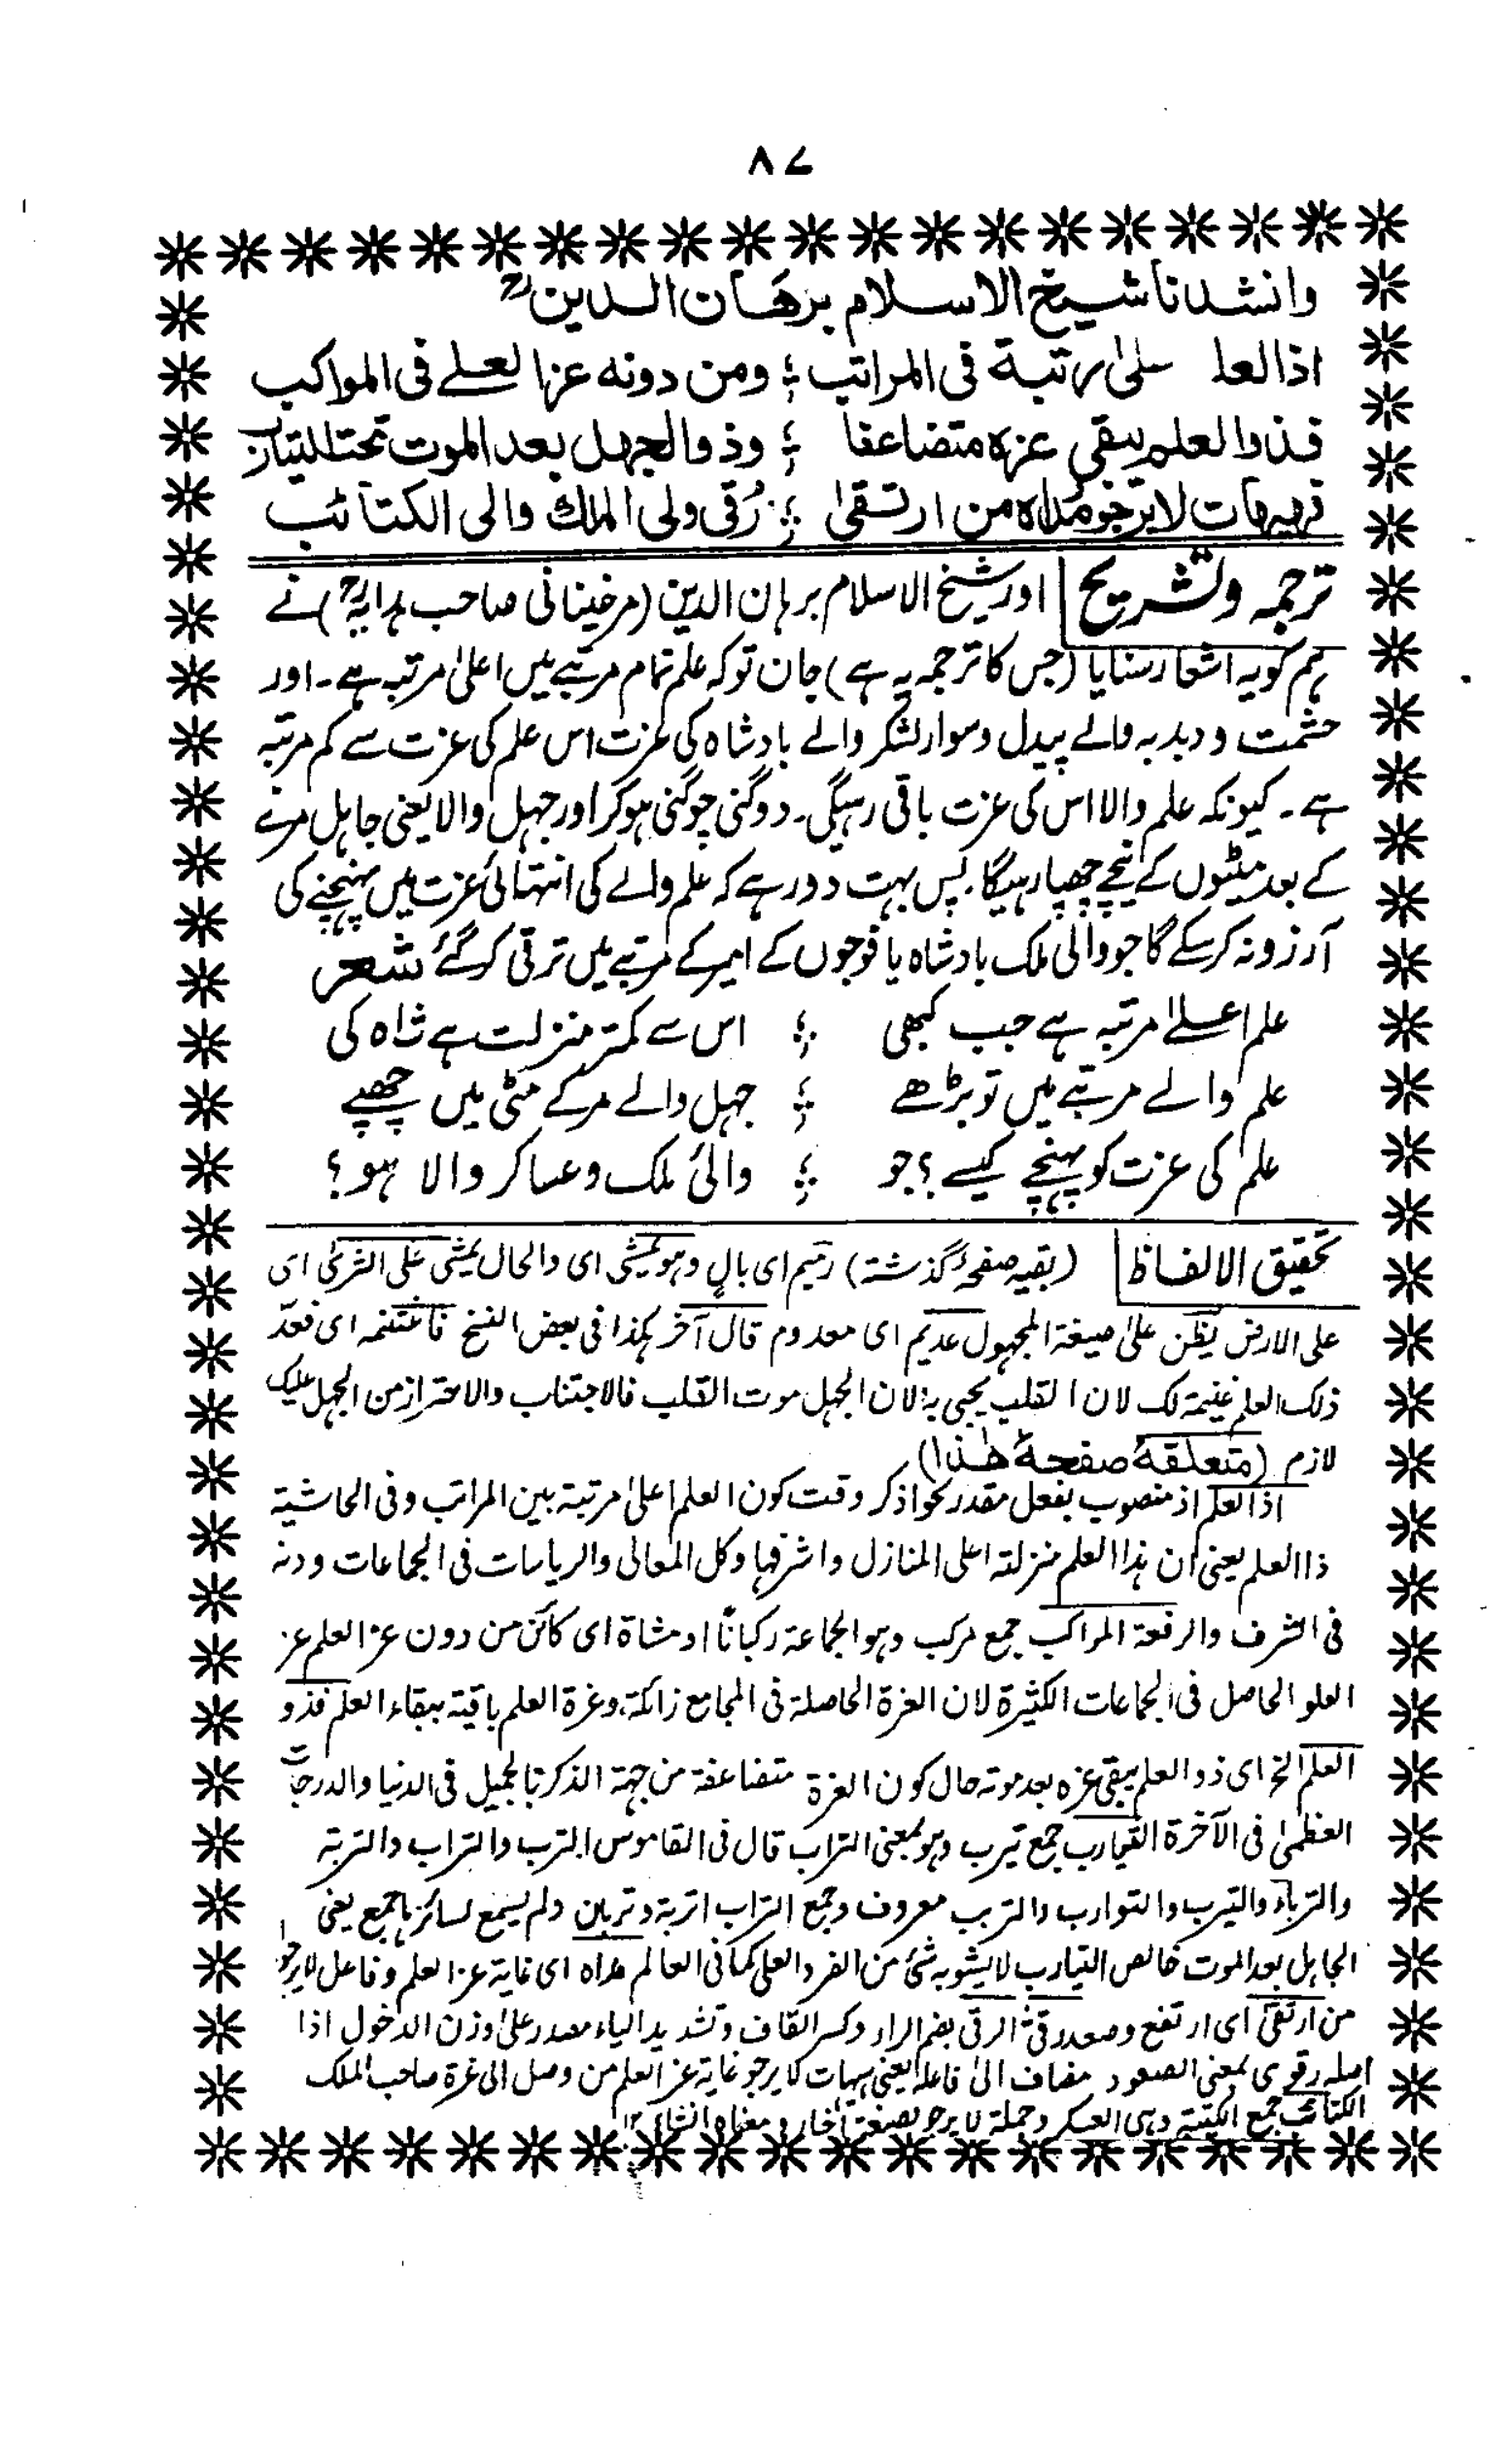 ۸۷
وانشدنا شيخ الاسلام برهان الدينؒ
اذ العلم اعلىٰ رتبة فى المراتب ؛ ومن دونه عز العلے فى المواكب
فذو العلم يبقى عزه متضاعفا ؛ وذو الجهل بعد الموت تحت التيارب
فهيهات لا يرجو مداه من ارتقىٰ ؛ رُقى ولى الملك والى الكتائب
ترجمہ وتشریح اور شیخ الاسلام برہان الدین (مرغینانی صاحب ہدایہؒ) نے
ہم کو یہ اشعار سنایا (جس کا ترجمہ یہ ہے) جان تو کہ علم تمام مرتبے میں اعلیٰ مرتبہ ہے۔ اور
حشمت و دبدبہ والے پیدل و سوار لشکر والے بادشاہ کی عزت اس علم کی عزت سے کم مرتبہ
ہے۔ کیونکہ علم والا اس کی عزت باقی رہیگی۔ دوگنی چوگنی ہوکر اور جہل والا یعنی جاہل مرنے
کے بعد مٹیوں کے نیچے چھپا رہیگا۔ پس بہت دور ہے کہ علم والے کی انتہائی عزت میں پہنچنے کی
آرزو نہ کرسکے گا جو والی ملک بادشاہ یا فوجوں کے امیر کے مرتبے میں ترقی کرگئے شعر
علم اعلےٰ مرتبہ ہے جب کبھی ؛ اس سے کمتر منزلت ہے شاہ کی
علم والے مرتبے میں تو بڑھے ؛ جہل والے مرکے مٹی میں چھپے
علم کی عزت کو پہنچے کیسے؟ جو ؛ والئ ملک وعساکر والا ہو؟
تحقیق الالفاظ (بقیہ صفحۂ گذشتہ) رمیم ای بالٍ وہو یمشی ای والحال یمشی علی الثریٰ ای
علی الارض یظن علیٰ صیغۃ المجہول عدیم ای معدوم قال آخر ہکذا فی بعض النسخ فاغتنمہ ای فعدّ
ذلک العلم غنیمۃ لک لان القلب یحیی بہ لان الجہل موت القلب فالاجتناب والاحتراز من الجہل علیک
لازم (متعلقۂ صفحۂ ھٰذا)
اذ العلم اذ منصوب بفعل مقدر نحو اذکر وقت کون العلم اعلیٰ مرتبۃ بین المراتب وفی الحاشیۃ
ذا العلم یعنی ان ہذا العلم منزلتہ اعلی المنازل واشرفہا وکل المعالی والریاسات فی الجماعات ودنہ
فی الشرف والرفعۃ المراکب جمع مرکب وہو الجماعۃ رکباناً او مشاۃ ای کائن من دون عز العلم عز
العلو الحاصل فی الجماعات الکثیرۃ لان العزۃ الحاصلۃ فی المجامع زائلۃ، وعزۃ العلم باقیۃ ببقاء العلم فذو
العلم الخ ای ذو العلم یبقی عزہ بعد موتہ حال کون العزۃ متضاعفۃ من جہۃ الذکر بالجمیل فی الدنیا والدرجات
العظمیٰ فی الآخرۃ التیارب جمع تیرب وہو بمعنی التراب قال فی القاموس الترب والتراب والتربۃ
والترباء والتیرب والتوارب والترب معروف وجمع التراب اتربۃ وتربان ولم یسمع لسائرہا جمع یعنی
الجاہل بعد الموت خالص التیارب لا یشوبہ شئ من الفرد العلی کما فی العالم مداہ ای غایۃ عز العلم وفاعل لا یرجوا
من ارتقیٰ ای ارتفع وصعد رقی الرقی بضم الراء وکسر القاف وتشدید الیاء مصدر علیٰ وزن الدخول اذا
اصلہ رقوی بمعنی الصعود مضاف الیٰ فاعلہ یعنی ہیہات لا یرجو غایۃ عز العلم من وصل الی عزۃ صاحب الملک
الکتائب جمع الکتیبۃ وہی العسکر وجملۃ لا یرجو بصیغۃ اخبار ومعناہ انشاء ۱۲